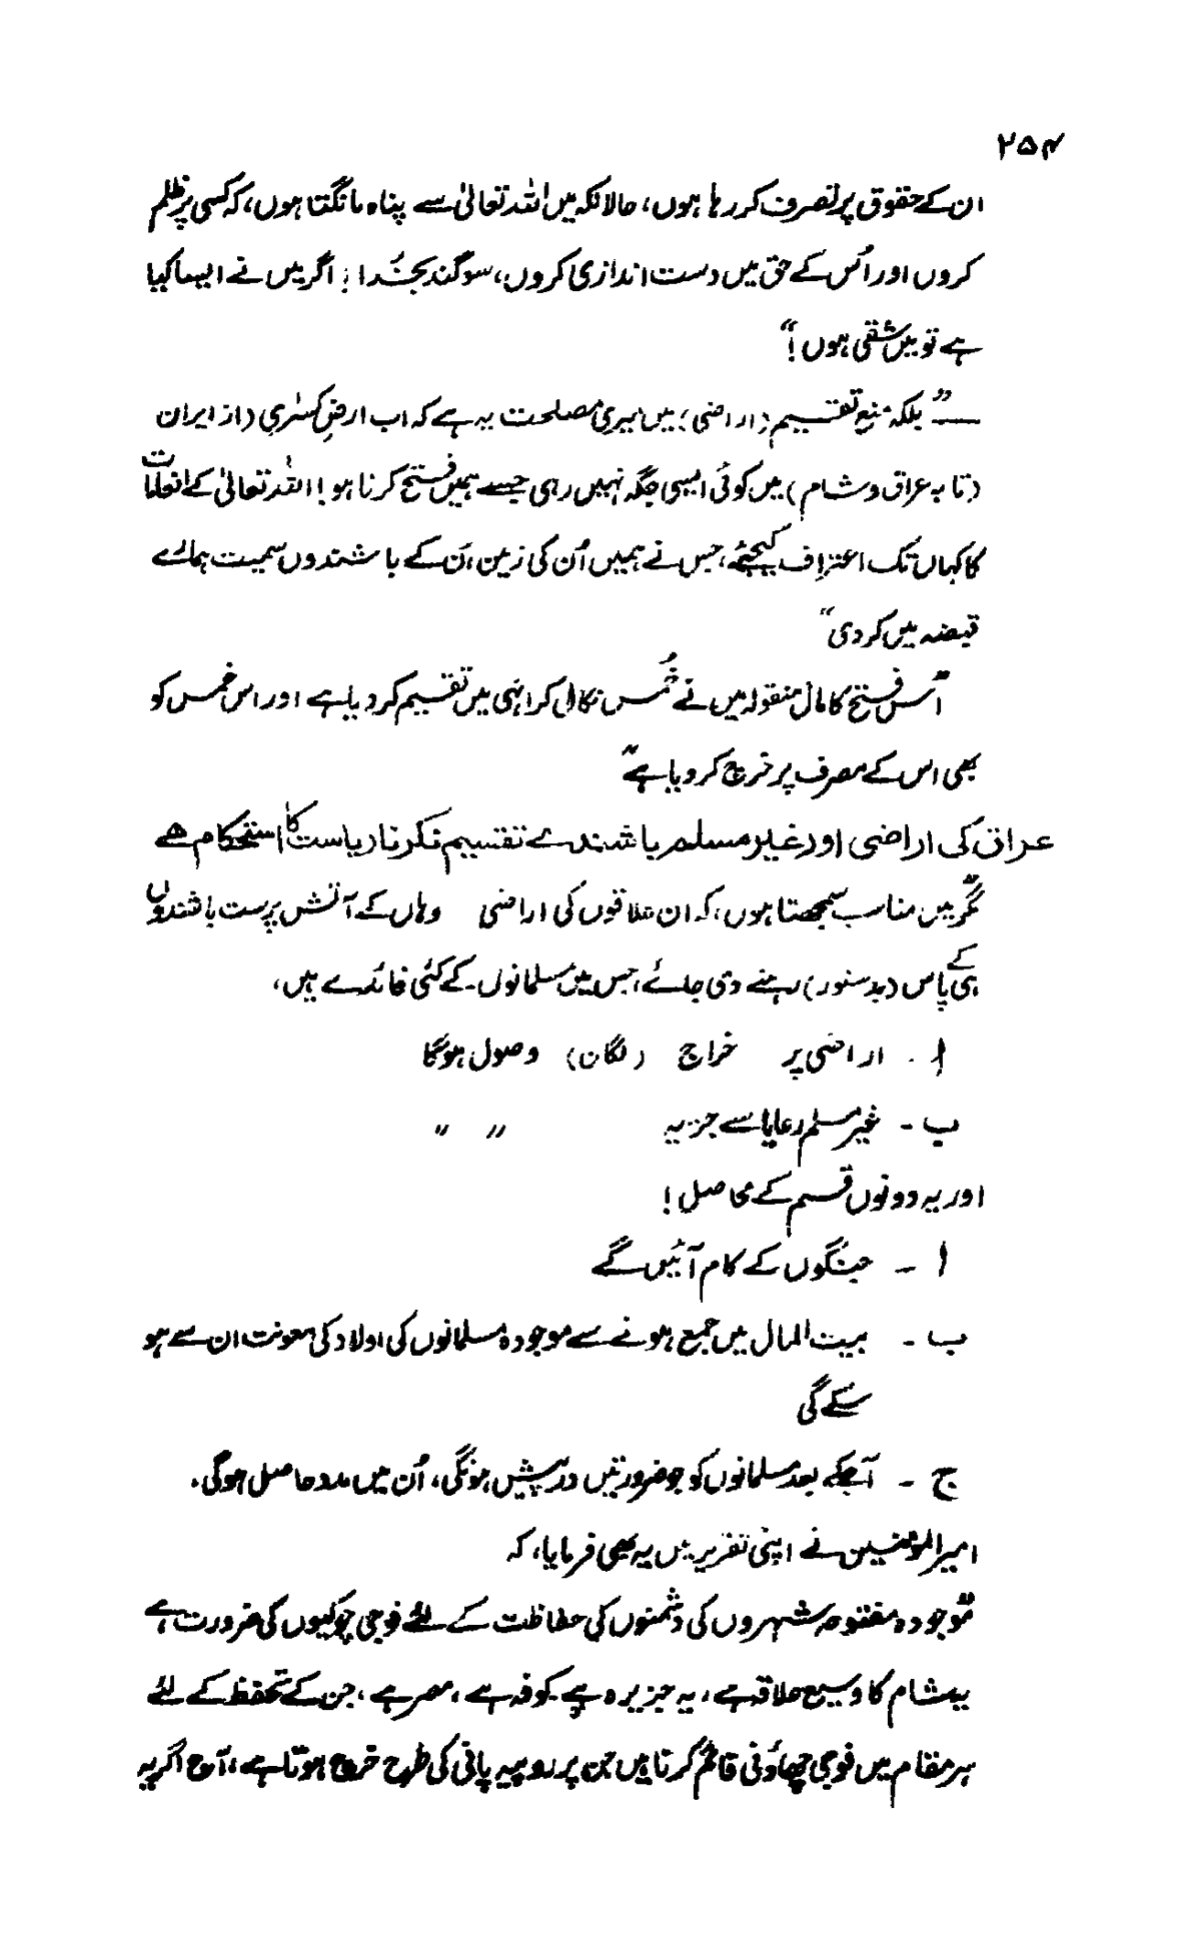 ۲۵۴
ان کے حقوق پر تصرف کر رہا ہوں، حالانکہ میں اللہ تعالیٰ سے پناہ مانگتا ہوں، کہ کسی پر ظلم
کروں اور اُس کے حق میں دست اندازی کروں، سوگند بخدا! اگر میں نے ایسا کیا
ہے تو میں شقی ہوں!“
— ”بلکہ منع تقسیم (اراضی) میں میری مصلحت یہ ہے کہ اب ارضِ کسریٰ (از ایران
(تا بہ عراق و شام) میں کوئی ایسی جگہ نہیں رہی جسے ہمیں فتح کرنا ہو! اللہ تعالیٰ کے انعامات
کا کہاں تک اعتراف کیجئے، جس نے ہمیں اُن کی زمین، اُن کے باشندوں سمیت ہمارے
قبضہ میں کر دی“
”اس فتح کا مال منقولہ میں نے خُمس نکال کر انہی میں تقسیم کر دیا ہے اور اس خمس کو
بھی اس کے مصرف پر خرچ کر دیا ہے“
عراق کی اراضی اور غیر مسلم باشندے تقسیم نکرنا ریاست کا استحکام ہے
”مگر میں مناسب سمجھتا ہوں، کہ ان علاقوں کی اراضی وہاں کے آتش پرست باشندوں
ہی کے پاس (بدستور) رہنے دی جائے، جس میں مسلمانوں کے کئی فائدے ہیں،
ا۔ اراضی پر خراج (لگان) وصول ہوگا
ب۔ غیر مسلم رعایا سے جزیہ 〃 〃
اور یہ دونوں قسم کے محاصل!
ا۔ جنگوں کے کام آئیں گے
ب۔ بیت المال میں جمع ہونے سے موجودہ مسلمانوں کی اولاد کی معونت ان سے ہو
سکے گی
ج۔ آجکے بعد مسلمانوں کو جو ضرورتیں درپیش ہونگی، اُن میں مدد حاصل ہوگی۔
امیر المومنین نے اپنی تقریر میں یہ بھی فرمایا، کہ
”موجودہ مفتوحہ شہروں کی دشمنوں کی حفاظت کے لئے فوجی چوکیوں کی ضرورت ہے
یہ شام کا وسیع علاقہ ہے، یہ جزیرہ ہے کوفہ ہے، مصر ہے، جن کے تحفظ کے لئے
ہر مقام میں فوجی چھاؤنی قائم کرنا ہیں جن پر روپیہ پانی کی طرح خرچ ہوتا ہے، آج اگر یہ